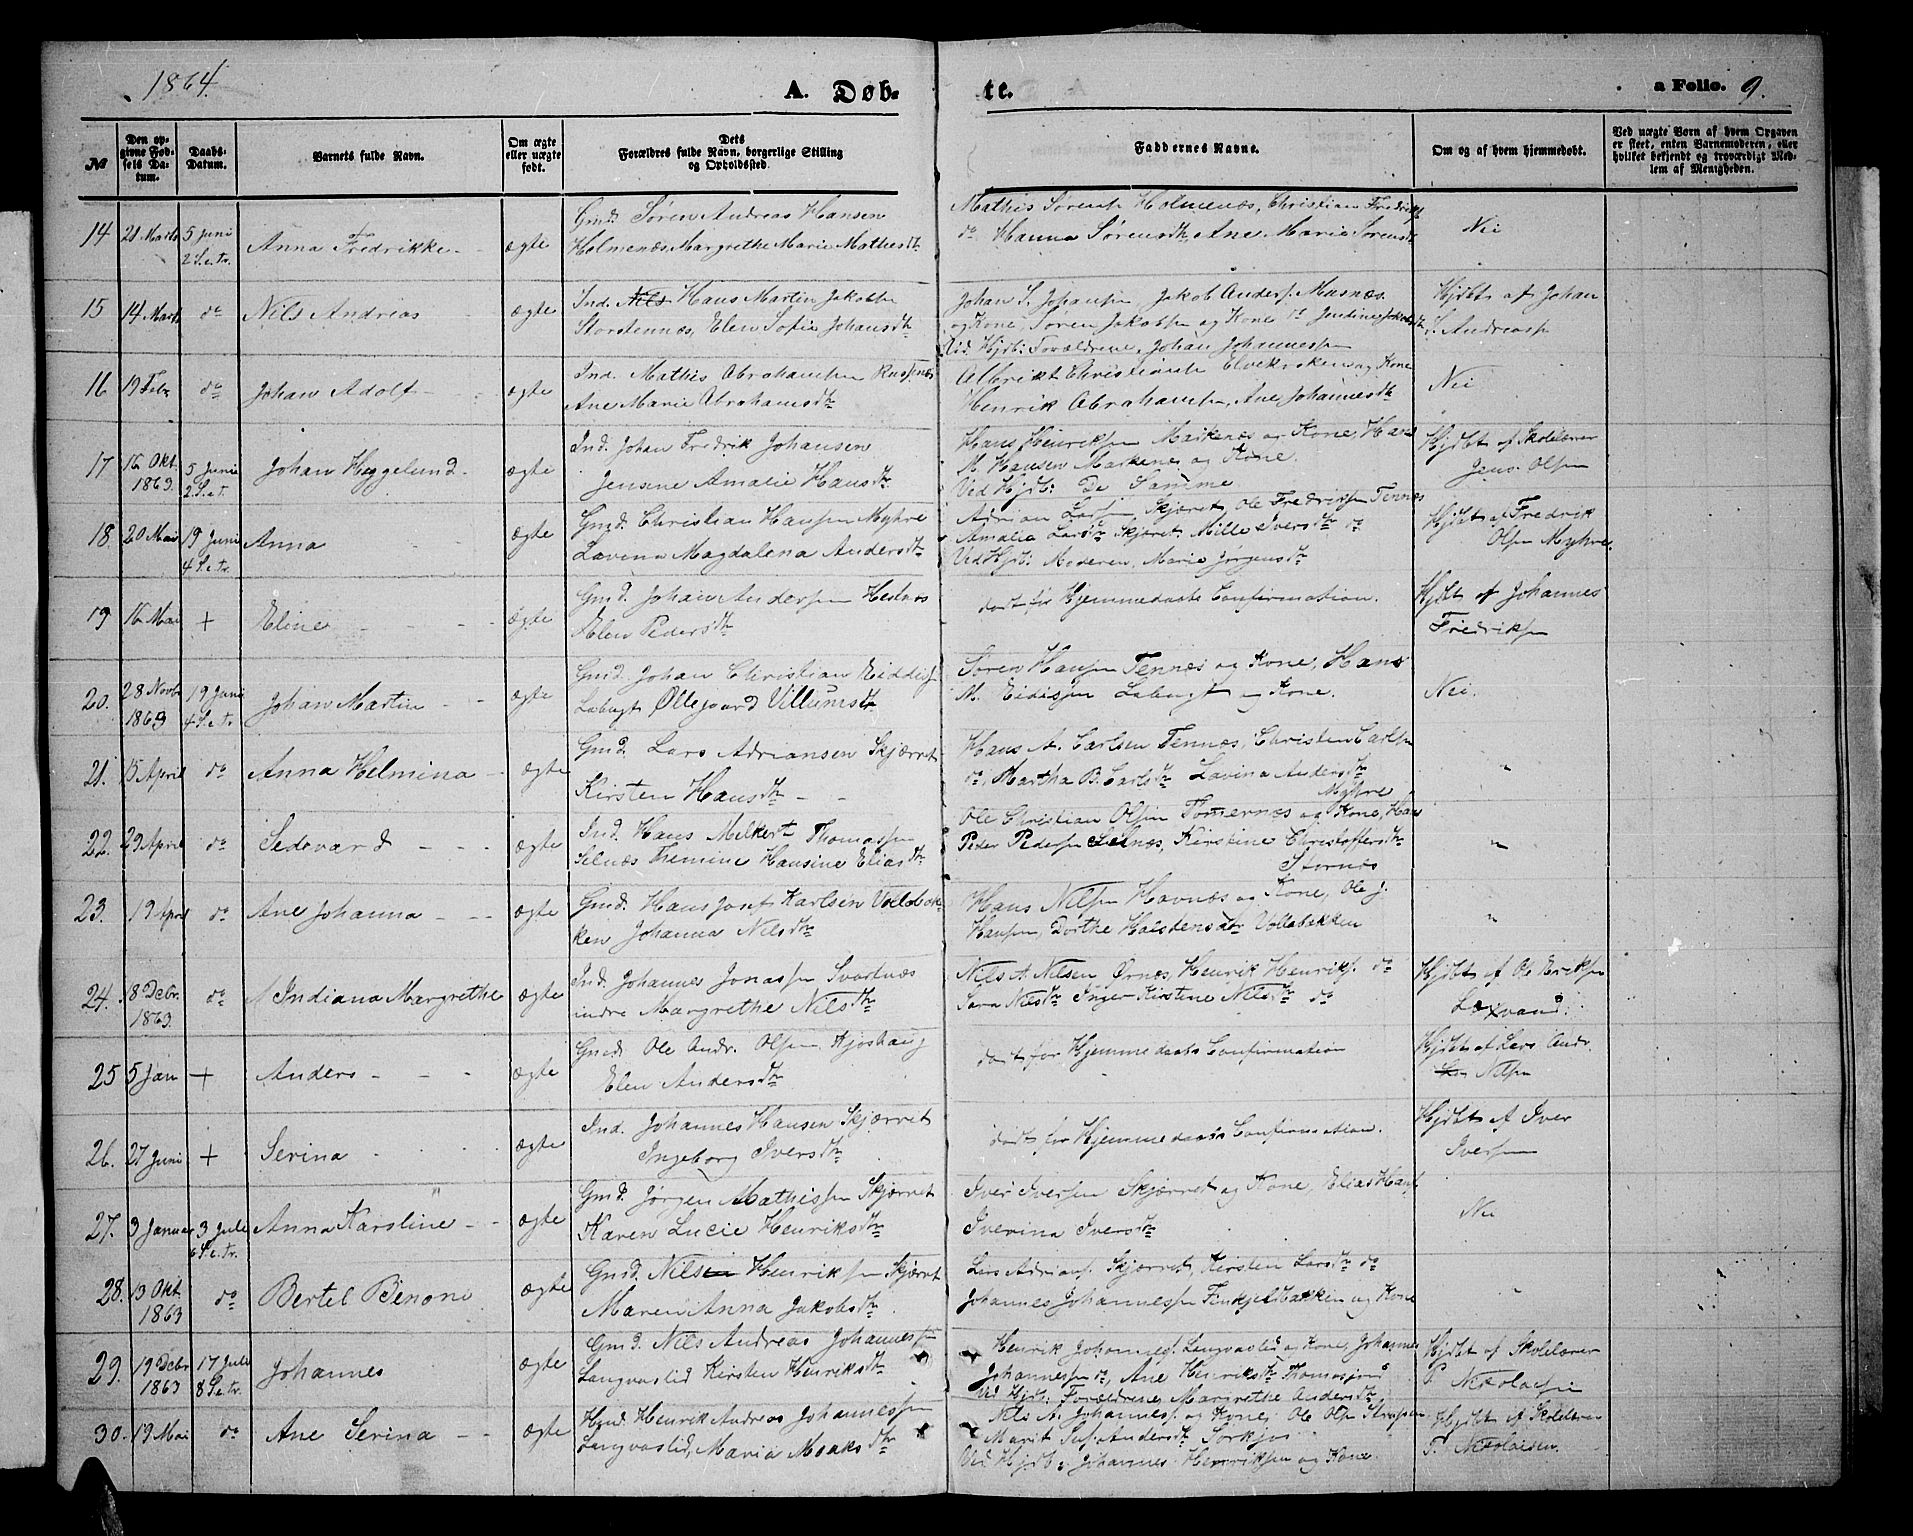 1864.
A. Døb-
te.
a Folio. 9.
№
Den op-
givne Fød-
sels Da-
tum.
Daabs-
Datum.
Barnets fulde Navn.
Om ægte
eller uægte
født.
Dets
Forældres fulde Navn, borgerlige Stilling
og Opholdssted.
Faddernes Navne.
Om og af hvem hjemmedøbt.
Ved uægte Børn af hvem Opgaven
er skeet, enten Barnemoderen, eller
hvilket bekjendt og troværdigt Med-
lem af Menigheden.
14 21 Marts 5 Juni 2 S. e. tr. Anna Fredrikke ægte
Gmd. Søren Andreas Hansen
Holmenæs, Margrethe Marie Mathisdtr
Mathis Sørensen Holmenæs, Christian Fredriks
do Hanna Sørensdtr, Ane Marie Sørensdtr
Nei
15 14 Marts do Nils Andreas ægte
Ind. Nils Hans Martin Jakobsen
Storstennæs, Elen Sofie Johansdtr
Johan S. Johansen, Jakob Anders. Masnæs
og Kone, Søren Jakobsen og Kone do Jendine Jakobsdtr
Ved Hjdb: Forældrene, Johan Johannessen
Hjdbt af Johan
S. Andreasen
16 19 Febr do Johan Adolf ægte
Ind. Mathis Abrahamsen Russenæs
Ane Marie Abrahamsdtr
Albrikt Christiansen Elvekroken og Kone
Henrik Abrahamsen, Ane Johannesdtr
Nei
17 16 Okt. 1863. 5 Juni 2 S. e. t. Johan Heggelund ægte
Ind. Johan Fredrik Johansen
Jensine Amalie Hansdtr
Hans Henriksen Markenæs og Kone, Hans
M. Hansen Markenes og Kone.
Ved Hjdb: De Samme
Hjdbt af Skolelærer
Jens Olsen
18. 20 Mai 19 Juni 4 S. e. tr. Anna ægte
Gmd. Christian Hansen Myhre
Lavina Magdalena Andersdtr
Adrian Larsen Skjæret, Ole Fredriksen Tennæs
Amalia Larsdtr Skjæret, Mille Iversdtr do
Ved Hjdb: Moderen, Marie Jørgensdtr
Hjdbt af Fredrik
Olsen Myhre
19 16 Mai + Eline ægte
Gmd. Johan Andersen Hestnes
Elen Pedersdtr
dødt før Hjemmedaabs Confirmation.
Hjdbt af Johannes
Fredriksen
20. 28 Novbr 1863 19 Juni 4 S. e. tr. Johan Martin ægte
Gmd. Johan Christian Eiddis.
Labugt Ollegaard Villumsdtr
Søren Hansen Tennæs og Kone, Hans
M. Eidissen Labugt og Kone.
Nei.
21. 15 April do Anna Helmina ægte
Gmd. Lars Adriansen Skjæret
Kirsten Hansdtr
Hans A. Carlsen Tennæs, Christen Carlsen
do, Martha B. Carlsdtr Lavina Andersdtr
Myhre
"
22. 29 April do Sedevard ægte
Ind. Hans Melkert Thomassen
Selnæs Themine Hansine Eliasdtr
Ole Christian Olsen Tomernæs og Kone, Hans
Peder Pedersen Selnæs, Kirstine Christoffersdtr
Stornæs
"
23. 19 April do Ane Johanna ægte
Gmd. Hans Josef Karlsen Vollebak-
ken Johanna Nilsdtr
Hans Nilsen Havnæs og Kone, Ole J.
Hansen, Dorthe Halstensdtr Vollebakken
"
24. 18 Debr. 1863. do Indiana Margrethe ægte
Ind. Johannes Jonassen Svartnæs
indre Margrethe Nilsdtr
Nils A. Nilsen Ørnes, Henrik Henriks. do
Sara Nilsdtr Inger Kirstine Nilsdtr do
Hjdbt af Ole Eriksen
Laxvand.
25 5 Jan + Anders ægte
Gmd Ole Andr. Olsen Kjoshaug
Elen Andersdtr
dødt før Hjemmedaabs Confirmation
Hjdbt af Lars Andr.
Nilsen
26. 27 Juni + Serina ægte
Ind. Johannes Hansen Skjærret
Ingeborg Iversdtr
dødt før Hjemmedaabs Confirmation.
Hjdbt af Iver
Iversen
27. 3 Januar 3 Juli 6 S. e. tr. Anna Karoline ægte
Gmd. Jørgen Mathissen Skjærret
Karen Lucie Henriksdtr
Iver Iversen Skjærret og Kone, Elias Hans.
Iverina Iversdtr
Nei
28. 13 Okt. 1863 do Bertel Benoni ægte
Gmd. Nils Henriksen Skjæret
Maren Anna Jakobsdtr
Lars Adrians. Skjærret, Kirsten Larsdtr do
Johannes Johannessen Finkjelbakken og Kone
29. 19 Debr 1863 17 Juli 8 S. e. tr. Johannes ægte
Gmd. Nils Andreas Johannessen
Langvaslid Kirsten Henriksdtr
Henrik Johannes. Langvaslid og Kone, Johannes
Johannessen do, Ane Henriksdtr Thomasjord
Ved Hjdb: Forældrene, Margrethe Andersdtr
Hjdbt af Skolelærer
P. Nikolaisen
30. 19 Mai do Ane Serina ægte
Hmd. Henrik Andreas Johannessen
Langvaslid, Maria Monksdtr
Nils A. Johannes. og Kone, Ole Olsen Strupen
Marit Andersdtr Sørkjos
Ved Hjdb: Johannes Henriksen og Kone.
Hjdbt af Skolelærer
P. Nikolaisen.